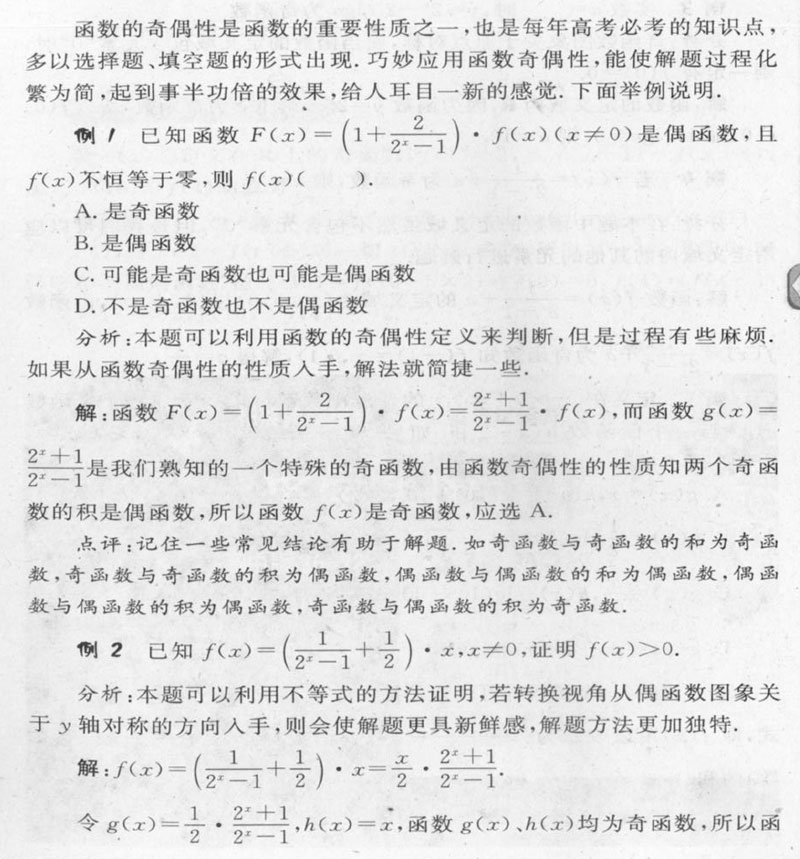 函数的奇偶性是函数的重要性质之一,也是每年高考必考的知识点,
多以选择题、填空题的形式出现.巧妙应用函数奇偶性,能使解题过程化
繁为简,起到事半功倍的效果,给人耳目一新的感觉.下面举例说明.
例 1 已知函数 F(x)=(1+2/(2^x-1))·f(x)(x≠0)是偶函数,且
f(x)不恒等于零,则 f(x)( ).
A. 是奇函数
B. 是偶函数
C. 可能是奇函数也可能是偶函数
D. 不是奇函数也不是偶函数
分析:本题可以利用函数的奇偶性定义来判断,但是过程有些麻烦.
如果从函数奇偶性的性质入手,解法就简捷一些.
解:函数 F(x)=(1+2/(2^x-1))·f(x)=(2^x+1)/(2^x-1)·f(x),而函数 g(x)=
(2^x+1)/(2^x-1)是我们熟知的一个特殊的奇函数,由函数奇偶性的性质知两个奇函
数的积是偶函数,所以函数 f(x)是奇函数,应选 A.
点评:记住一些常见结论有助于解题.如奇函数与奇函数的和为奇函
数,奇函数与奇函数的积为偶函数,偶函数与偶函数的和为偶函数,偶函
数与偶函数的积为偶函数,奇函数与偶函数的积为奇函数.
例 2 已知 f(x)=(1/(2^x-1)+1/2)·x,x≠0,证明 f(x)>0.
分析:本题可以利用不等式的方法证明,若转换视角从偶函数图象关
于 y 轴对称的方向入手,则会使解题更具新鲜感,解题方法更加独特.
解:f(x)=(1/(2^x-1)+1/2)·x=x/2·(2^x+1)/(2^x-1).
令 g(x)=1/2·(2^x+1)/(2^x-1),h(x)=x,函数 g(x)、h(x)均为奇函数,所以函